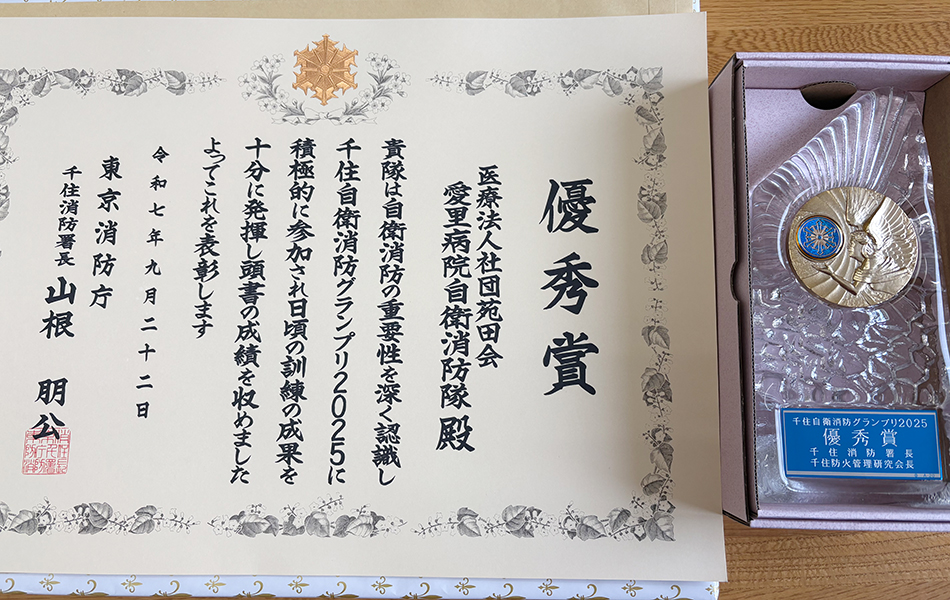 優秀賞
医療法人社団苑田会
愛里病院自衛消防隊 殿
貴隊は自衛消防の重要性を深く認識し
千住自衛消防グランプリ2025に
積極的に参加され日頃の訓練の成果を
十分に発揮し頭書の成績を収めました
よってこれを表彰します
令和七年九月二十二日
東京消防庁
千住消防署長 山根 朋公
千住自衛消防グランプリ2025
優秀賞
千住消防署長
千住防火管理研究会長